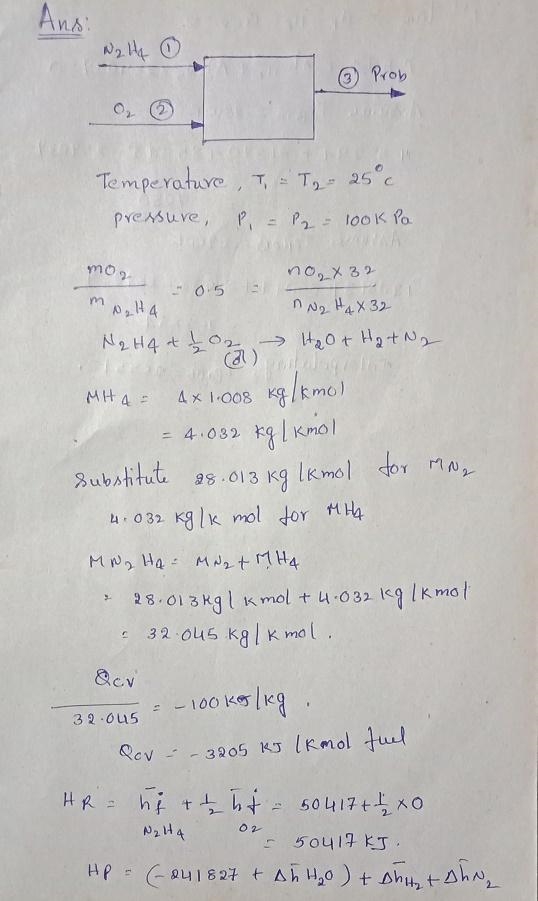 Ans:
N2H4 ①
③ Prob
O2 ②
Temperature, T1 = T2 = 25°c
pressure, P1 = P2 = 100K Pa
mO2 / mN2H4 = 0.5 = nO2 x 32 / nN2H4 x 32
N2H4 + ½ O2 → H2O + H2 + N2
MH4 = 4 x 1.008 kg/kmol
= 4.032 kg/kmol
Substitute 28.013 kg/kmol for MN2
4.032 kg/k mol for MH4
MN2H4 = MN2 + MH4
= 28.013kg/kmol + 4.032 kg/kmol
= 32.045 kg/kmol.
Qcv / 32.045 = -100 KJ/kg.
Qcv = -3205 KJ/kmol fuel
HR = h̄f N2H4 + ½ h̄f O2 = 50417 + ½ x 0
= 50417 KJ.
HP = (-241827 + Δh̄ H2O) + Δh̄H2 + Δh̄N2